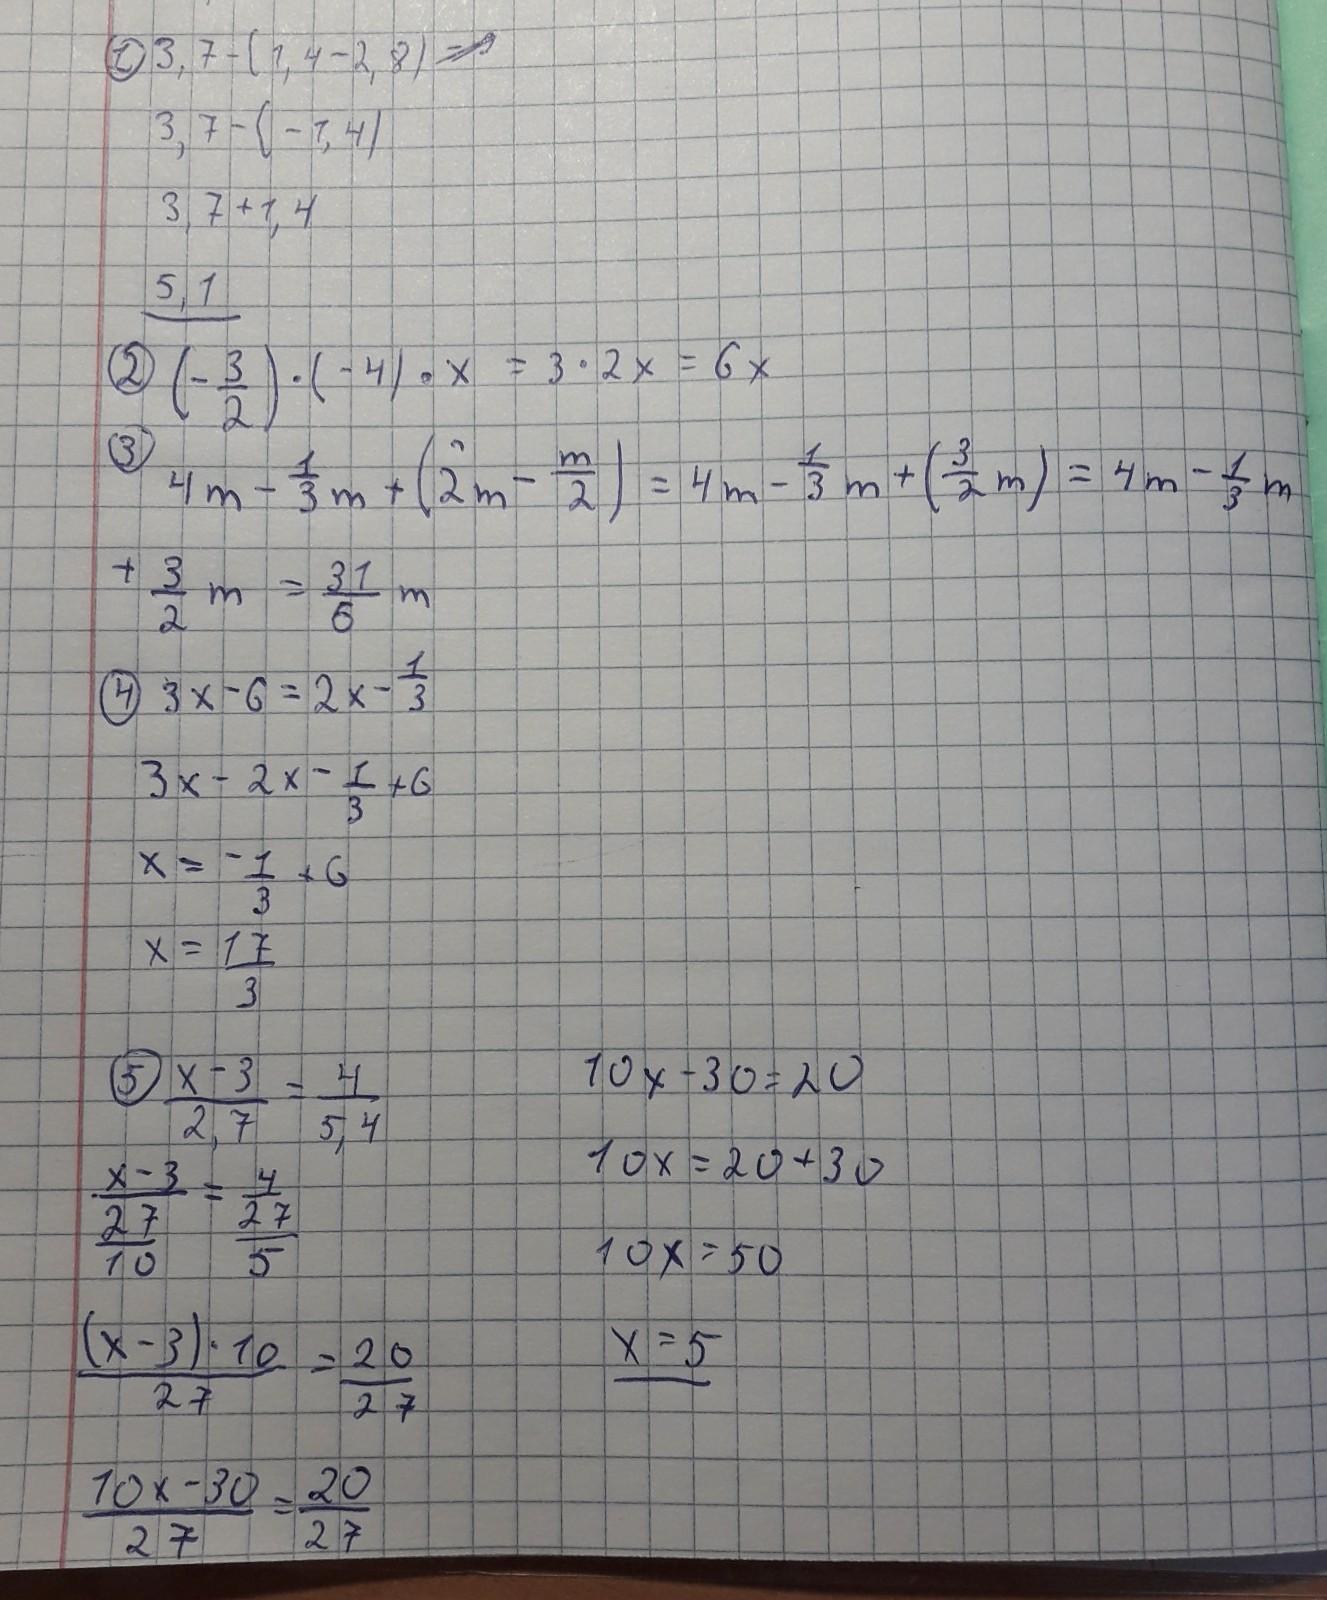 ① 3,7-(1,4-2,8)=
3,7-(-1,4)
3,7+1,4
5,1
② (-3/2)·(-4)·x = 3·2x = 6x
③ 4m - 1/3 m + (2m - m/2) = 4m - 1/3 m + (3/2 m) = 4m - 1/3 m
+ 3/2 m = 31/6 m
④ 3x-6=2x-1/3
3x-2x-1/3+6
x = -1/3+6
x = 17/3
⑤ (x-3)/2,7 = 4/5,4
(x-3)/(27/10) = 4/(27/5)
((x-3)·10)/27 = 20/27
(10x-30)/27 = 20/27
10x-30=20
10x=20+30
10x=50
x=5